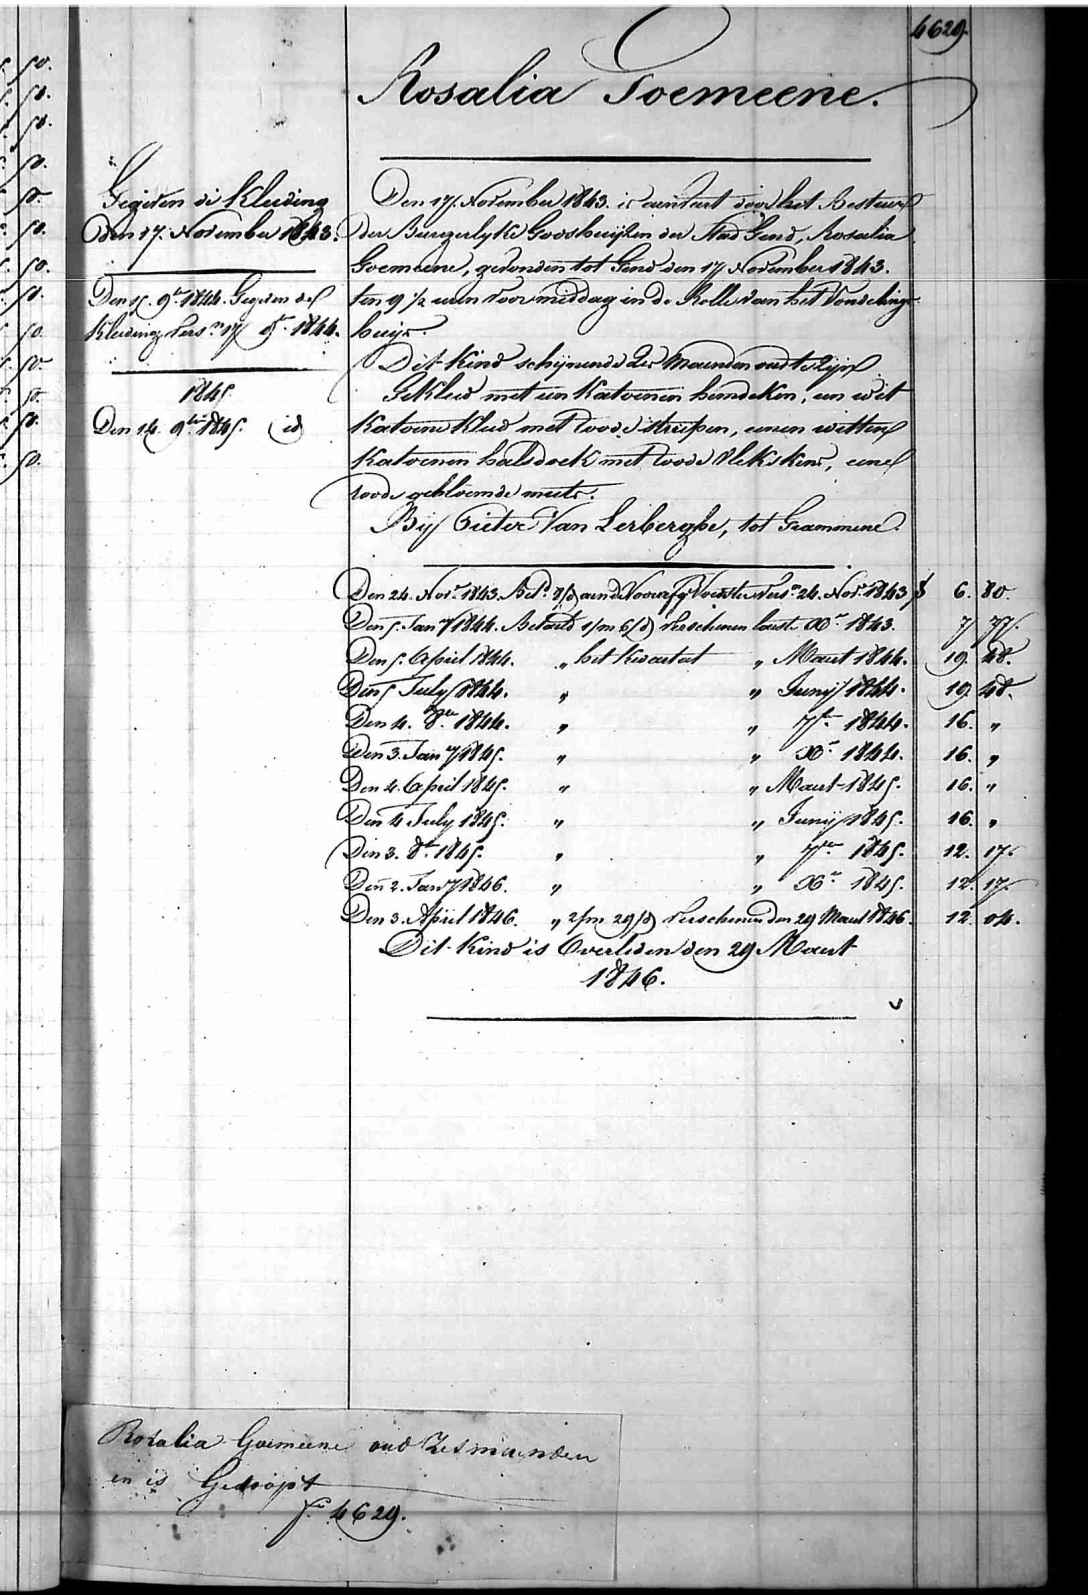 4629.
Rosalia Goemeene.
Gegeven de Kleeding
den 17. November 1843.
Den 15. 9br 1844. Gegeven de
Kleeding vers.n 17 9br 1844.
1845.
Den 14. 9bre 1845. id
Den 17. November 1843. is aenveert door het Bestuer
der Burgerlyke Godshuijsen der Stad Gend, Rosalia
Goemeene, gevonden tot Gend den 17 November 1843.
ten 9 1/2 uren voormiddag in de Rolle van het Vondelings
huijs.
Dit Kind schijnende zes Maenden oud te zijn
Gekleed met een Katoenen hemdeken, een wit
Katoene Kleed met roode streepen, eenen witten
Katoenen halsdoek met roode vlekskens, eene
roode gebloemde muts.
Bij Pieter Van Lerberghe, tot Grammene.
Den 24. Nov.r 1843. Bet.d 8/d aen de Voorster vers.n 24. Nov.r 1843 f 6. 80.
Den 5. Jany 1844. Betaeld 1/m 6/d verschenen laest Xbr 1843. 7 77.
Den 5. April 1844. „ het kwartael „ Maert 1844. 19. 48.
Den 5 July 1844. „ „ Junij 1844. 19. 48.
Den 4. 8bre 1844. „ „ 7br 1844. 16. „
Den 3. Jany 1845. „ „ Xbr 1844. 16. „
Den 4. April 1845. „ „ Maert 1845. 16. „
Den 4 July 1845. „ „ Junij 1845. 16. „
Den 3. 8br 1845. „ „ 7bre 1845. 12. 17.
Den 2. Jany 1846. „ „ Xbr 1845. 12. 17.
Den 3. April 1846. „ 2/m 29/d verschenen den 29 Maert 1846. 12. 04.
Dit Kind is Overleden den 29 Maert
1846.
Rosalia Goemeene oud Zes maenden
en is Gedoopt
f.o 4629.